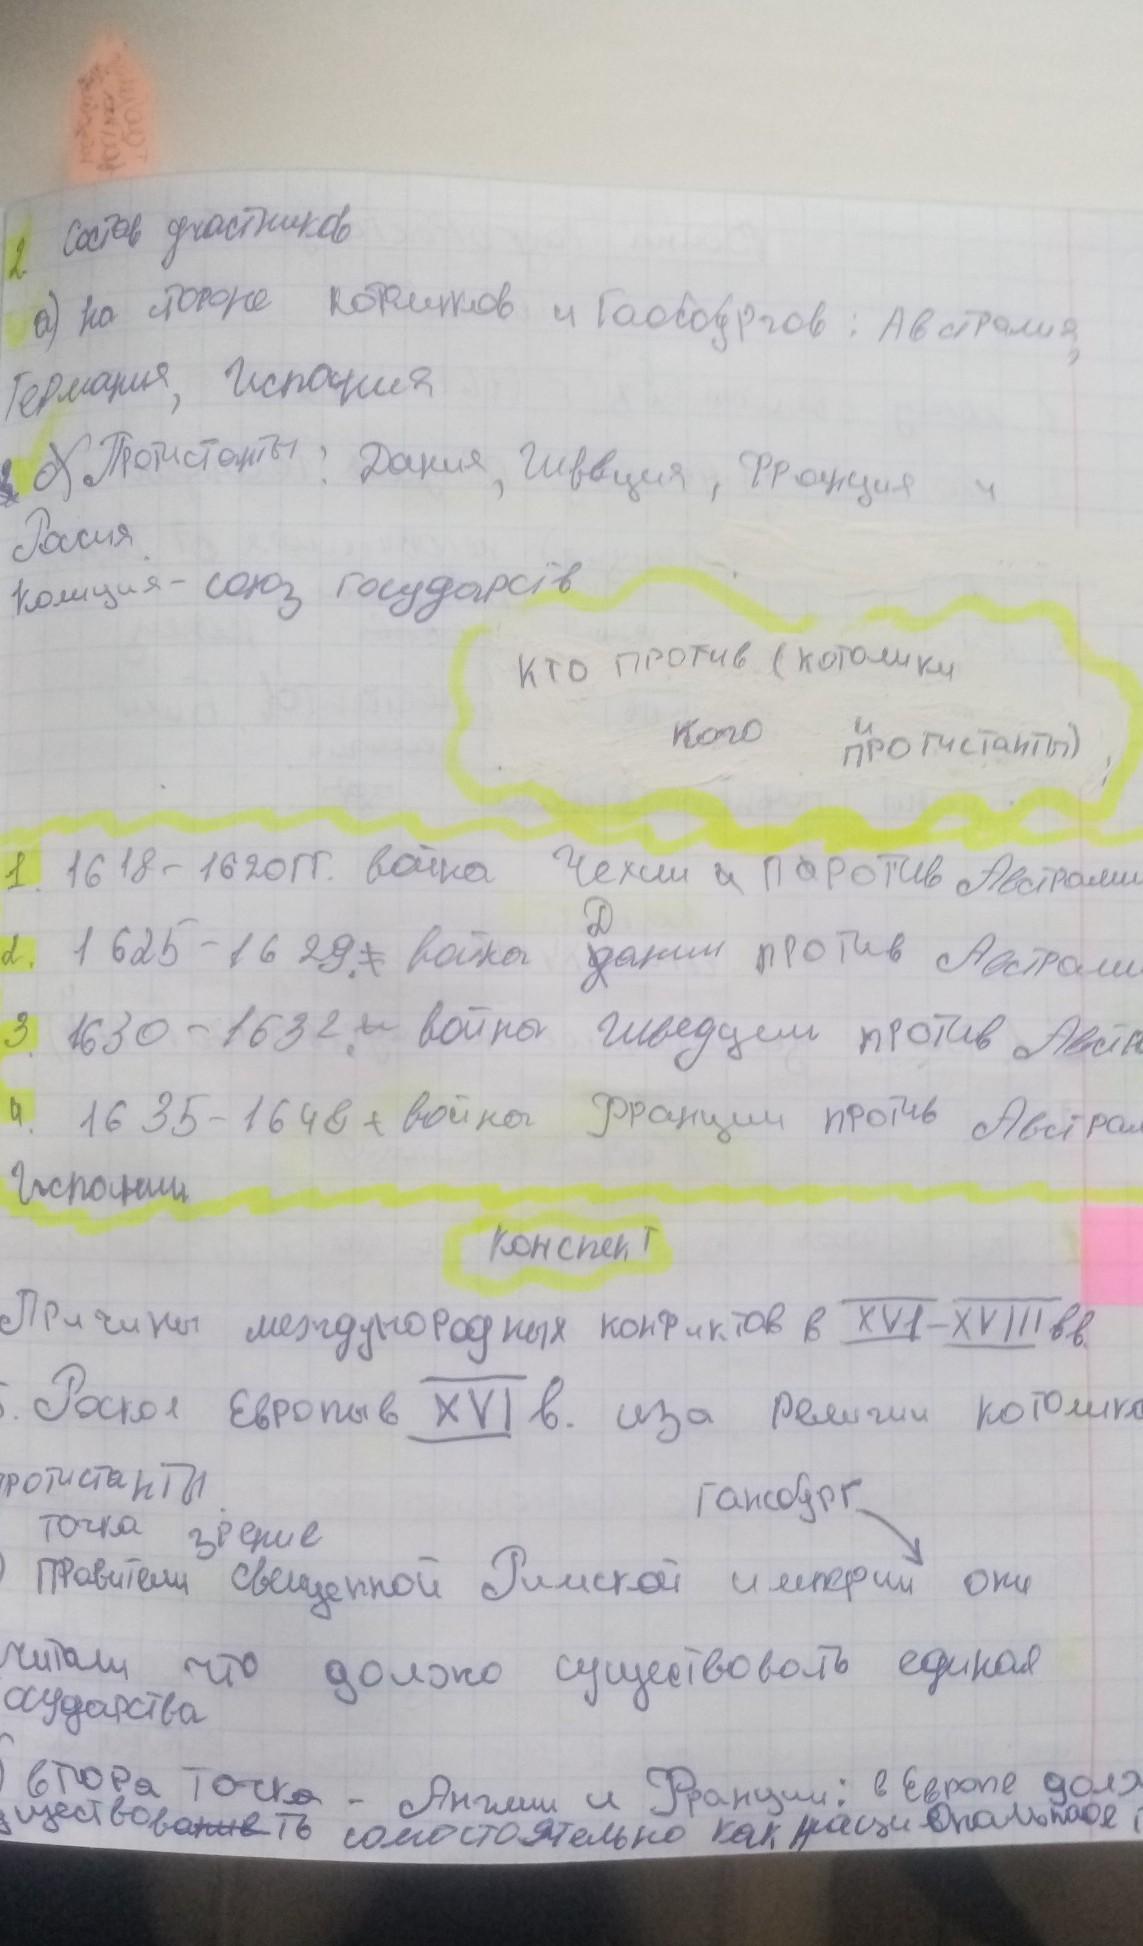 2. Состав участников
а) на стороне католиков и Габсбургов: Австралия,
Германия, Испания
б) Протистанты: Дания, Швеция, Франция и
Россия.
Колиция - союз государств
Кто против (котолики
кого и протистанты)
1. 1618-1620гг. война Чехии и против Австралии
2. 1625-1629г. война Дании против Австралии
3. 1630-1632 война Шведции против Австр
4. 1635-1648 войны Франции против Австрал
Испании
Конспект
Причины международных конфиктов в XVI-XVIII вв.
Раскол Европы в XVI в. изза религии котолико
протистанты.
точка зрение Гансбург
) Правители Свещенной Римской империи они
читали что должно существовать единая
осударства
) втора точка - Англии и Франции: в Европе долж
уществовать самостоятельно как национальное